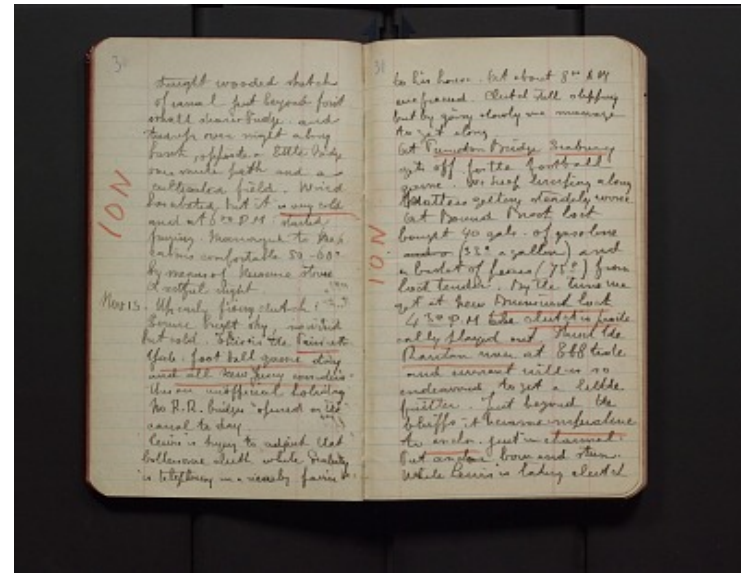 30
straight wooded stretch
of canal just beyond first
small
over night along
bank, opposite a little
path and a
cultivated field. Wind
has abated, but it is very cold
and at 6 00 P.M. started
freezing. Managed to keep
cabin comfortable 50-60°
by means of Kerosene stove
restful night.
ION
Nov 13. Up early fixing clutch.
bright sky, no wind
but cold. This is the
Yale foot ball game day
and all New Jersey considers
this an unofficial holiday
No R.R. bridges opened on the
canal to day
Lewis is trying to adjust that
bothersome clutch while Seabury
is telephoning in a nearby farm
31
to his house. At about 8 00 A M
we proceed. Clutch still slipping
but by going slowly we manage
to get along
At Bridge Seabury
gets off for the football
game. We keep limping along
Matters getting steadily worse
At Bound Brook lock
bought 40 gals. of gasolene
(33¢ a gallon) and
a basket of pears (75¢) from
lock tender. By the time we
get at New Brunswick lock
4 30 P.M. the clutch is practi
cally played out. Think the
Raritan river at Ebb tide
and current will
endeavored to get a little
further. Just beyond the
bluffs it became imperative
to anchor just in channel.
Put anchor bow and stern.
While Lewis is taking clutch
ION